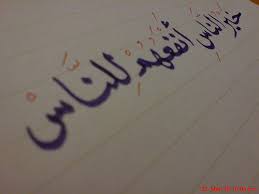 خَيرُ النَّاسِ أَنْفَعُهُمْ لِلنَّاسْ